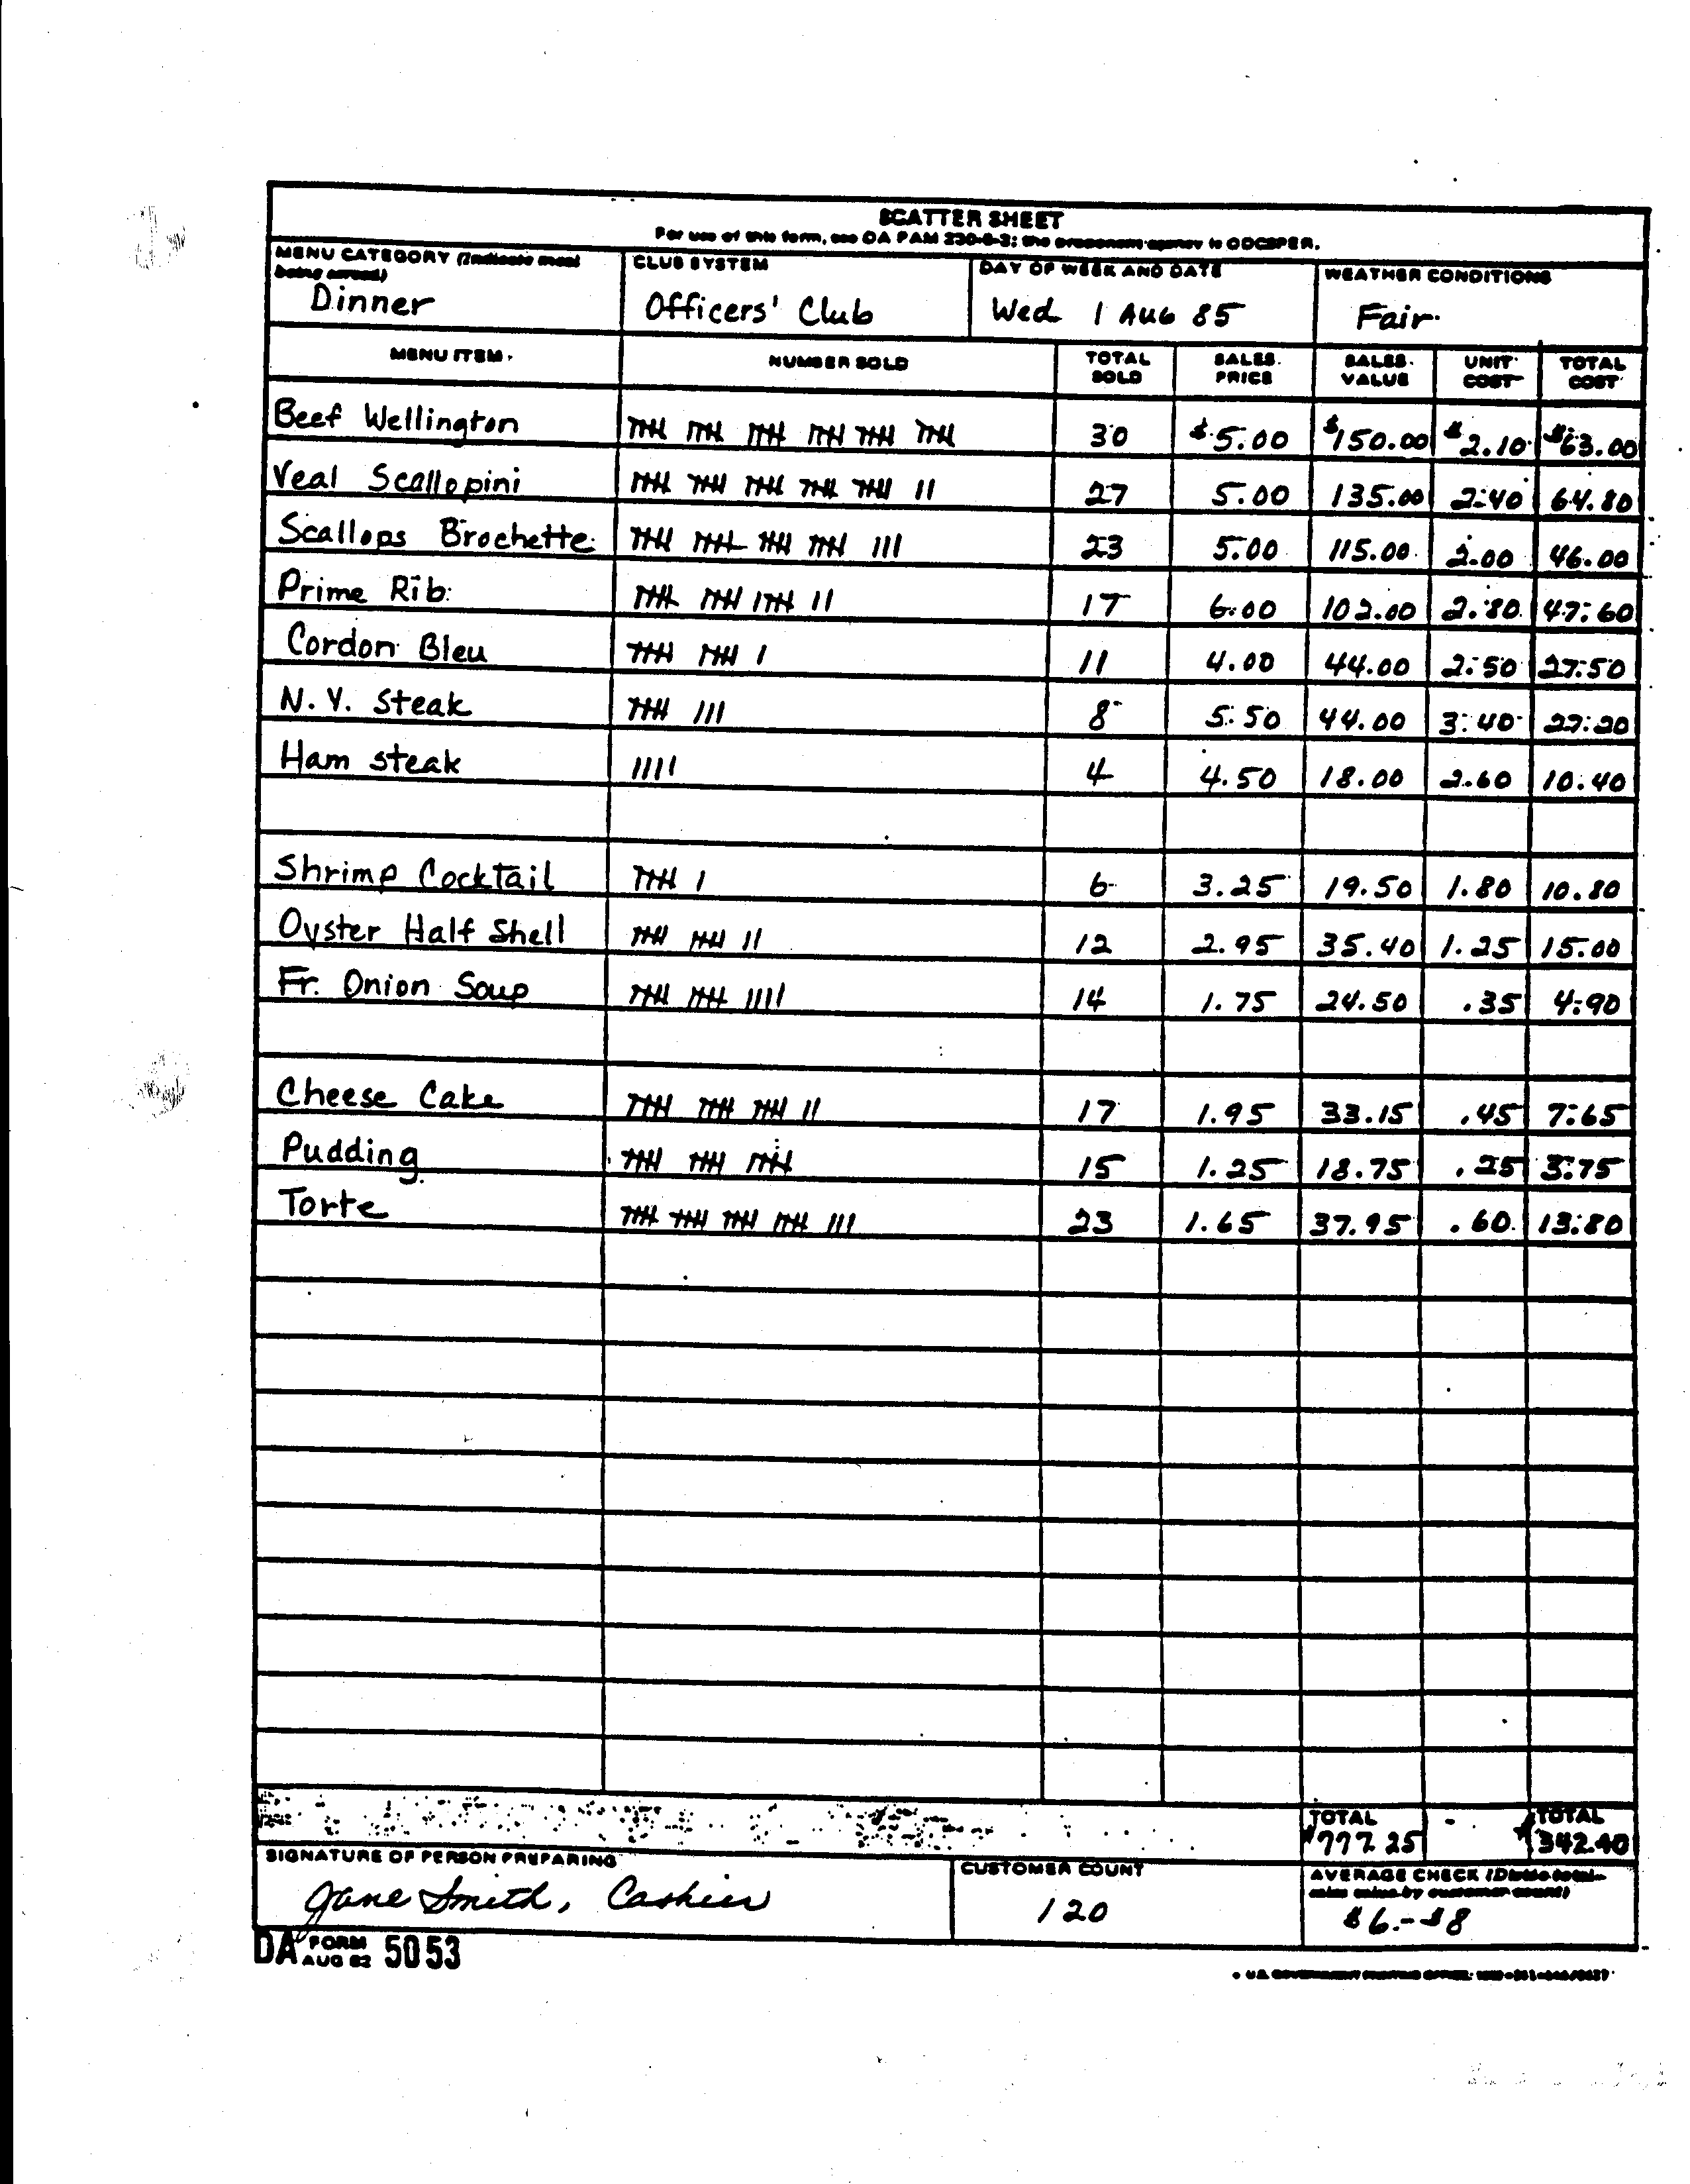 SCATTER SHEET
For use of this form, see DA PAM 230-6-3; the proponent agency is ODCSPER.
MENU CATEGORY (Indicate meal being served) CLUB SYSTEM DAY OF WEEK AND DATE WEATHER CONDITIONS
Dinner Officers' Club Wed 1 AUG 85 Fair
MENU ITEM NUMBER SOLD TOTAL SOLD SALES PRICE SALES VALUE UNIT COST TOTAL COST
Beef Wellington 30 $5.00 $150.00 $2.10 $63.00
Veal Scallopini 27 5.00 135.00 2.40 64.80
Scallops Brochette 23 5.00 115.00 2.00 46.00
Prime Rib 17 6.00 102.00 2.80 47.60
Cordon Bleu 11 4.00 44.00 2.50 27.50
N.Y. Steak 8 5.50 44.00 3.40 27.20
Ham steak 4 4.50 18.00 2.60 10.40
Shrimp Cocktail 6 3.25 19.50 1.80 10.80
Oyster Half Shell 12 2.95 35.40 1.25 15.00
Fr. Onion Soup 14 1.75 24.50 .35 4.90
Cheese Cake 17 1.95 33.15 .45 7.65
Pudding 15 1.25 18.75 .25 3.75
Torte 23 1.65 37.95 .60 13.80
TOTAL TOTAL
$777.25 $342.40
SIGNATURE OF PERSON PREPARING CUSTOMER COUNT AVERAGE CHECK (Divide total sales value by customer count)
Jane Smith, Cashier 120 $6.-$8
DA FORM AUG 82 5053
U.S. GOVERNMENT PRINTING OFFICE: